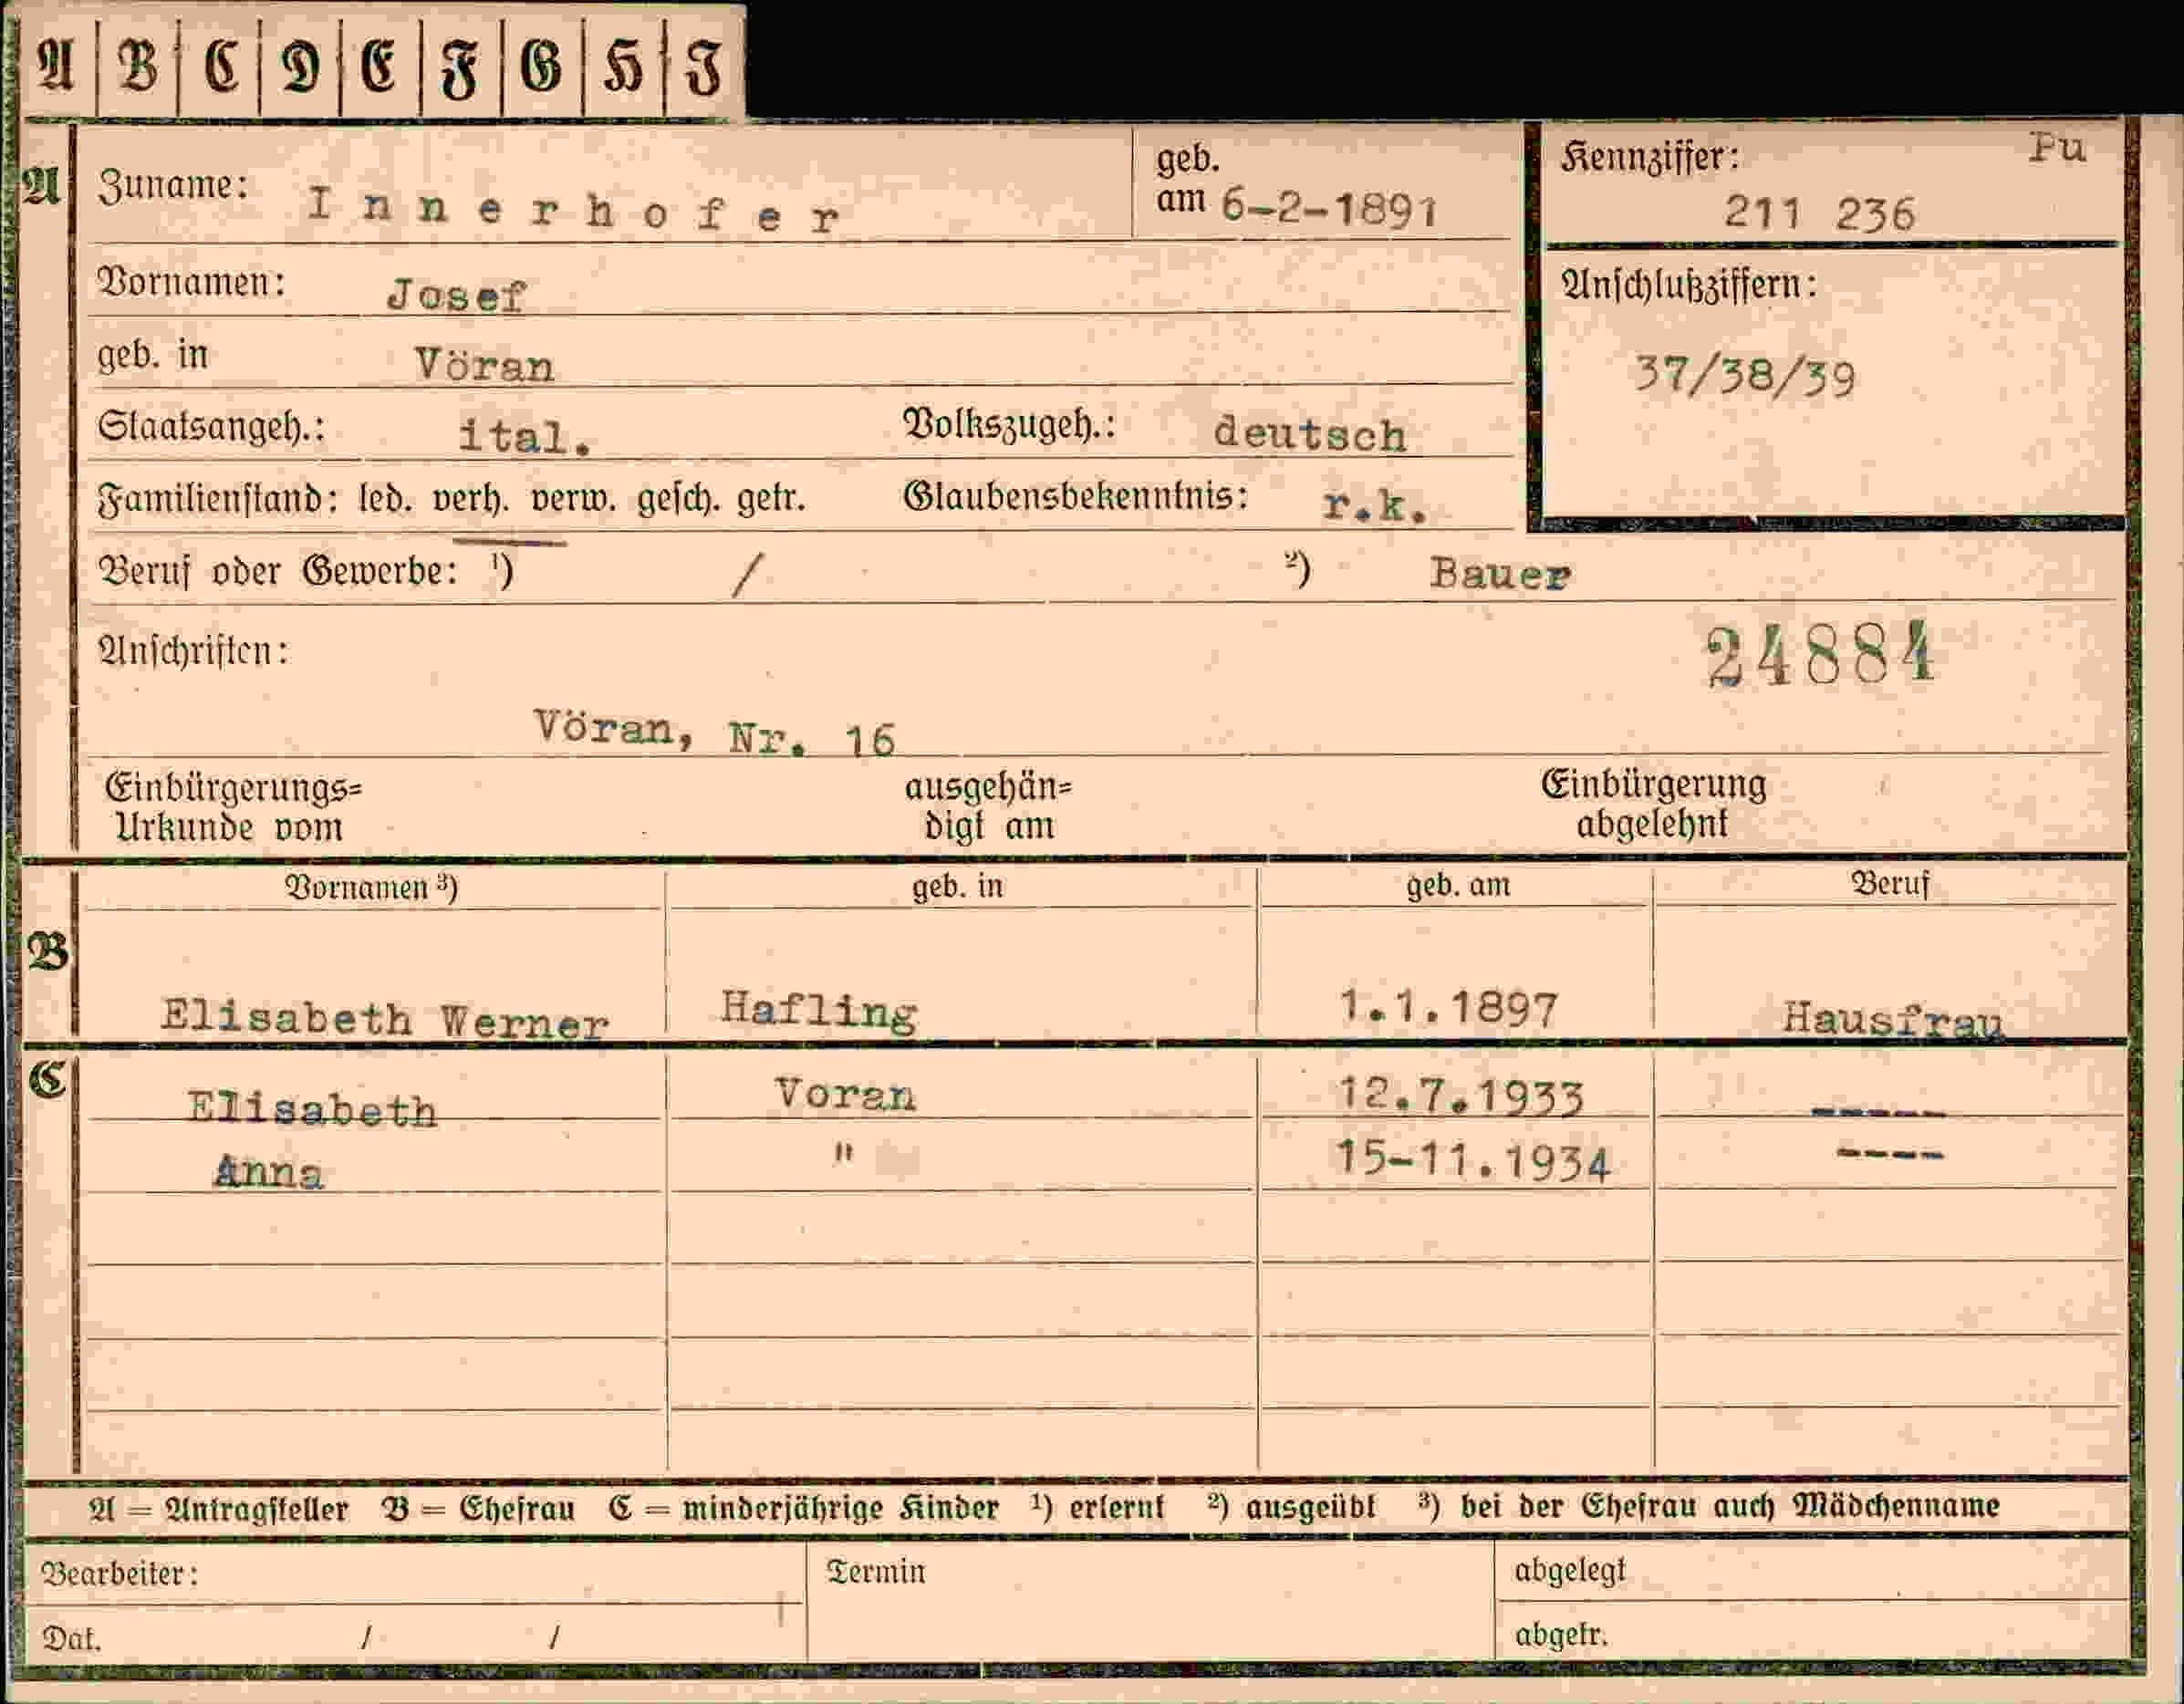 A B C D E F G H I
A Zuname: Innerhofer geb. am 6-2-1891 Kennziffer: Pu
211 236
Vornamen: Josef Anschlußziffern:
geb. in Vöran 37/38/39
Staatsangeh.: ital. Volkszugeh.: deutsch
Familienstand: led. verh. verw. gesch. getr. Glaubensbekenntnis: r.k.
Beruf oder Gewerbe: ¹) / ²) Bauer
Anschriften: 24884
Vöran, Nr. 16
Einbürgerungs= ausgehän= Einbürgerung
Urkunde vom digt am abgelehnt
Vornamen ³) geb. in geb. am Beruf
B
Elisabeth Werner Hafling 1.1.1897 Hausfrau
C Elisabeth Voran 12.7.1933 -----
Anna " 15-11.1934 ----
A = Antragsteller B = Ehefrau C = minderjährige Kinder ¹) erlernt ²) ausgeübt ³) bei der Ehefrau auch Mädchenname
Bearbeiter: Termin abgelegt
Dat. / / abgetr.